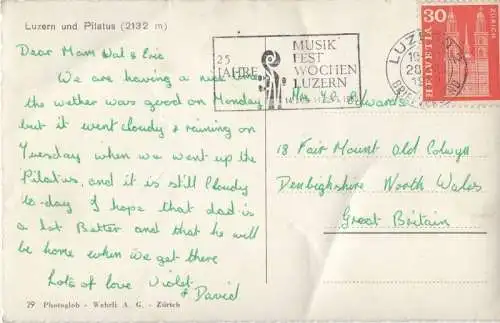 Luzern und Pilatus (2132 m)
Dear Mam Val & Eric
We are having a nice time
the wether was gerod on Monday
but it went cloudy & raining on
Tuesday when we went up the
Pilatus, and it is still Cloudy
to-day I hope that dad is
a lot Better and that he will
be home when we get there
Lots of love Violet
& David
29 Photoglob - Wehrli A. G. - Zürich
25
JAHRE
MUSIK
FEST
WOCHEN
LUZERN
LUZERN
30
HELVETIA
ZÜRICH
Edwards
18 Fair Mount Old Colwyn
Denbighshire North Wales
Great Britain